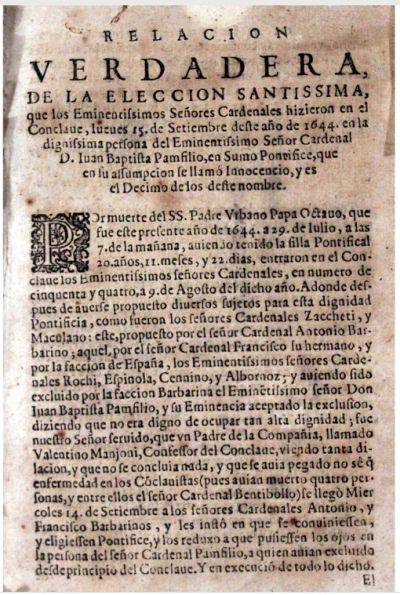 RELACION
VERDADERA,
DE LA ELECCION SANTISSIMA,
que los Eminentissimos Señores Cardenales hizieron en el
Conclaue, Iueues 15. de Setiembre deste año de 1644. en la
dignissima persona del Eminentissimo Señor Cardenal
D. Iuan Baptista Pamfilio, en Sumo Pontifice, que
en su assumpcion se llamó Innocencio, y es
el Decimo de los deste nombre.
POr muerte del SS. Padre Vrbano Papa Octauo, que
fue este presente año de 1644. a 29. de Iulio, a las
7. de la mañana, auiendo tenido la silla Pontifical
20. años, 11. meses, y 22. dias, entraron en el Con-
claue los Eminentissimos señores Cardenales, en numero de
cinquenta y quatro, a 9. de Agosto del dicho año. Adonde des-
pues de auerse propuesto diuersos sujetos para esta dignidad
Pontificia, como fueron los señores Cardenales Zaccheti, y
Maculano: este, propuesto por el señor Cardenal Antonio Bar-
barino; aquel, por el señor Cardenal Francisco su hermano, y
por la faccion de España, los Eminentissimos señores Carde-
nales Rochi, Espinola, Cennino, y Albornoz; y auiendo sido
excluido por la faccion Barbarina el Eminẽtissimo señor Don
Iuan Baptista Pamfilio, y su Eminencia aceptado la exclusion,
diziendo que no era digno de ocupar tan alta dignidad; fue
nuestro Señor seruido, que vn Padre de la Compañia, llamado
Valentino Manjoni, Confessor del Conclaue, viendo tanta di-
lacion, y que no se concluia nada, y que se auia pegado no sè q̃
enfermedad en los Cõclauistas (pues auian muerto quatro per-
sonas, y entre ellos el señor Cardenal Bentibollo) se llegò Mier
coles 14. de Setiembre a los señores Cardenales Antonio, y
Francisco Barbarinos, y les instò en que se conuiniessen,
y eligiessen Pontifice, y los reduxo a que pusiessen los ojos en
la persona del señor Cardenal Pamfilio, a quien auian excluido
desde principio del Conclaue. Y en execució de todo lo dicho.
El